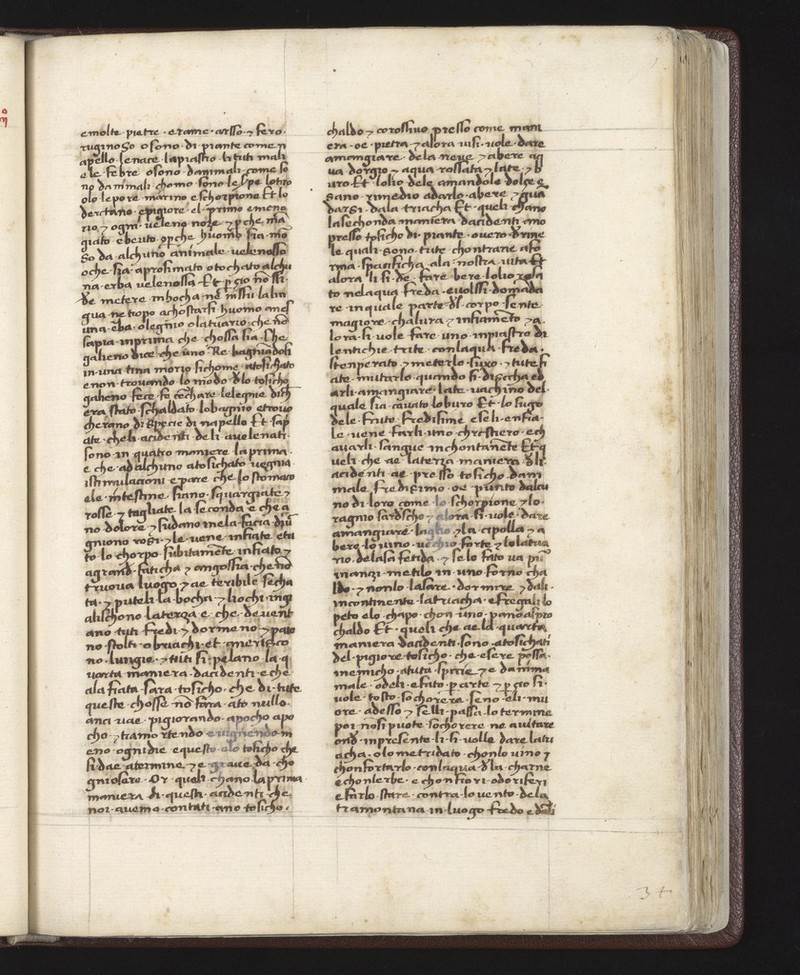 e molte pietre · e rame · arsso · ⁊ fero ·
ruginoso o sono · di piante come n
apello · le nace · lapiastro · li tuti mali
e le febre o sono · danimali · come so
no danimali · chomo sono le
olo lepore marino e schorpione Et lo
e pigiore · el primo e meno
rio ⁊ ogni · veleno noze ⁊ p che ma
giato · e beuto · op che huomo sia mo
so da alchuno animale velenosso
oche sia · aprosimato o tochato alchu
na · erba velenossa Et p cio nō ssi ·
de metere in bocha · ne in ssu la lin
gua ne tropo achostarsi huomo ame
una · erba · o legnio o latuario · che nō
sapia in prima che chossa sia · Che
galieno dice che uno Re
in · una tina morio sichome · atosichato
e non · trouando lo modo dlo tosicho
galieno fece
era stato · schaldato lo bagnio e trouo
cherano di specie di napello Et sap
ate · cheli acidenti deli auelenati ·
sono in quatro maniere la prima ·
e che ad alchuno atosichato vegnia ·
istimulacioni e pare che lo stomaco
e le intestine · siano · squargiate ⁊
rosse ⁊ tagliate la seconda e che a
no dolore ⁊ sudano inela facia
gniono rosi · ⁊ le vene · infiate e tu
to lo chorpo · subitamente infiato ⁊
agrand faticha ⁊ angossia che nō
truoua luogo · ⁊ ae teribile secha
ta · ⁊ puteli la bocha · ⁊ li ochi ·
alischono la terza e · che · deuent
ano tuti fredi ⁊ dormeno · ⁊ paio
no stolti obriachi · et
no · lungio · ⁊ tuti si pelano la q
uarta maniera · dacidenti · e che
ala fiata · sara tosicho · che di · tute
queste · chosse nō fara · ato nullo ·
anci · uae · pigiorando · apocho apo
cho · ⁊ tramortendo e uigniendo m
eno · ogni die e questo · elo tosicho che
si dae a termine · ⁊ e graue da cho
gniosere · Or queli · chano la prima ·
maniera di · questi · acidenti che
noi · auemo · contati · ano tosicho ·
chaldo ⁊ corossiuo presso come mani
era · oe pietra · ⁊ alora si · uole · dare
a mangiare · dela neue ⁊ abere aq
ua dorgio ⁊ aqua · rossata ⁊ late · ⁊ b
uro Et lolio dele amandole dolze e
sano · rimedio adarlo · abere · ⁊ qua
darsi · dala triacha Et · queli chano
la sechonda maniera · dacidenti · ano
presso tosicho di · piante · ouero ·
le quali · sono · tute · chontrarie ala fo
rma · specificha · ala · nostra uita Et
alora li si · de · fare · bere · lolio rosa
to nelaqua freda · e uolssi · domada
re · in quale parte dl · corpo · sente
magiore · chalura ⁊ infiameto ⁊ a ·
lora · si · uole · fare · uno · inpiastro di
lentichie trite · con laqua · freda ·
stenperato ⁊ meterlo · suxo · ⁊ tute fi
ate · mutarlo · quando si · disecha ed
arli · amangiare · late · uachino del
quale sia · cauato lo buro Et · lo sugo
dele · frute · fredisime · e se li · enfia ·
le · vene · farli · uno · chrestiero · e ch
auarli · sangue inchontanete Et q
ueli · che · ae · la terza maniera dli
acidenti · ae · presso · tosicho danı
male fredisimo · oe · punto dalcu
no di · loro · come · lo schorpione · ⁊ lo ·
ragnio · sardescho · ⁊ alora · si · uole · dare
amangiare · laglio ⁊ la cipolla ⁊ a
bere · lo uino · uechio forte ⁊ lo latua
rio · delasa fetida · ⁊ se lo fato ua piu
inanzi · metilo · in · uno · forno cha
ldo · ⁊ nonlo · lasare · dormire · ⁊ dali ·
incontinente la triacha · e fregali lo
peto elo · chapo · chon · uno · pano aspro
chaldo Et · queli che ae la quarta
maniera dacidenti · sono · atosichati
del · pigiore · tosicho · che · esere possa ·
inemicho · atuta · specie ⁊ e danima
male · o deli · efato parte ⁊ p cio si ·
uole · tosto · sochorere seno eli · mu
ore · adesso ⁊ selli · passa · lo termine
poi nosi puote sochorere ne aiutare
ond · in presente li · si · uolle · dare latri
acha · olo metridato · chonlo uino ⁊
chonfortarlo · con laqua dla charne
e chonlerbe · e chon fiori · odoriferi
e farlo · stare · contra · lo uento · dela
tramontana in · luogo · fredo e
34